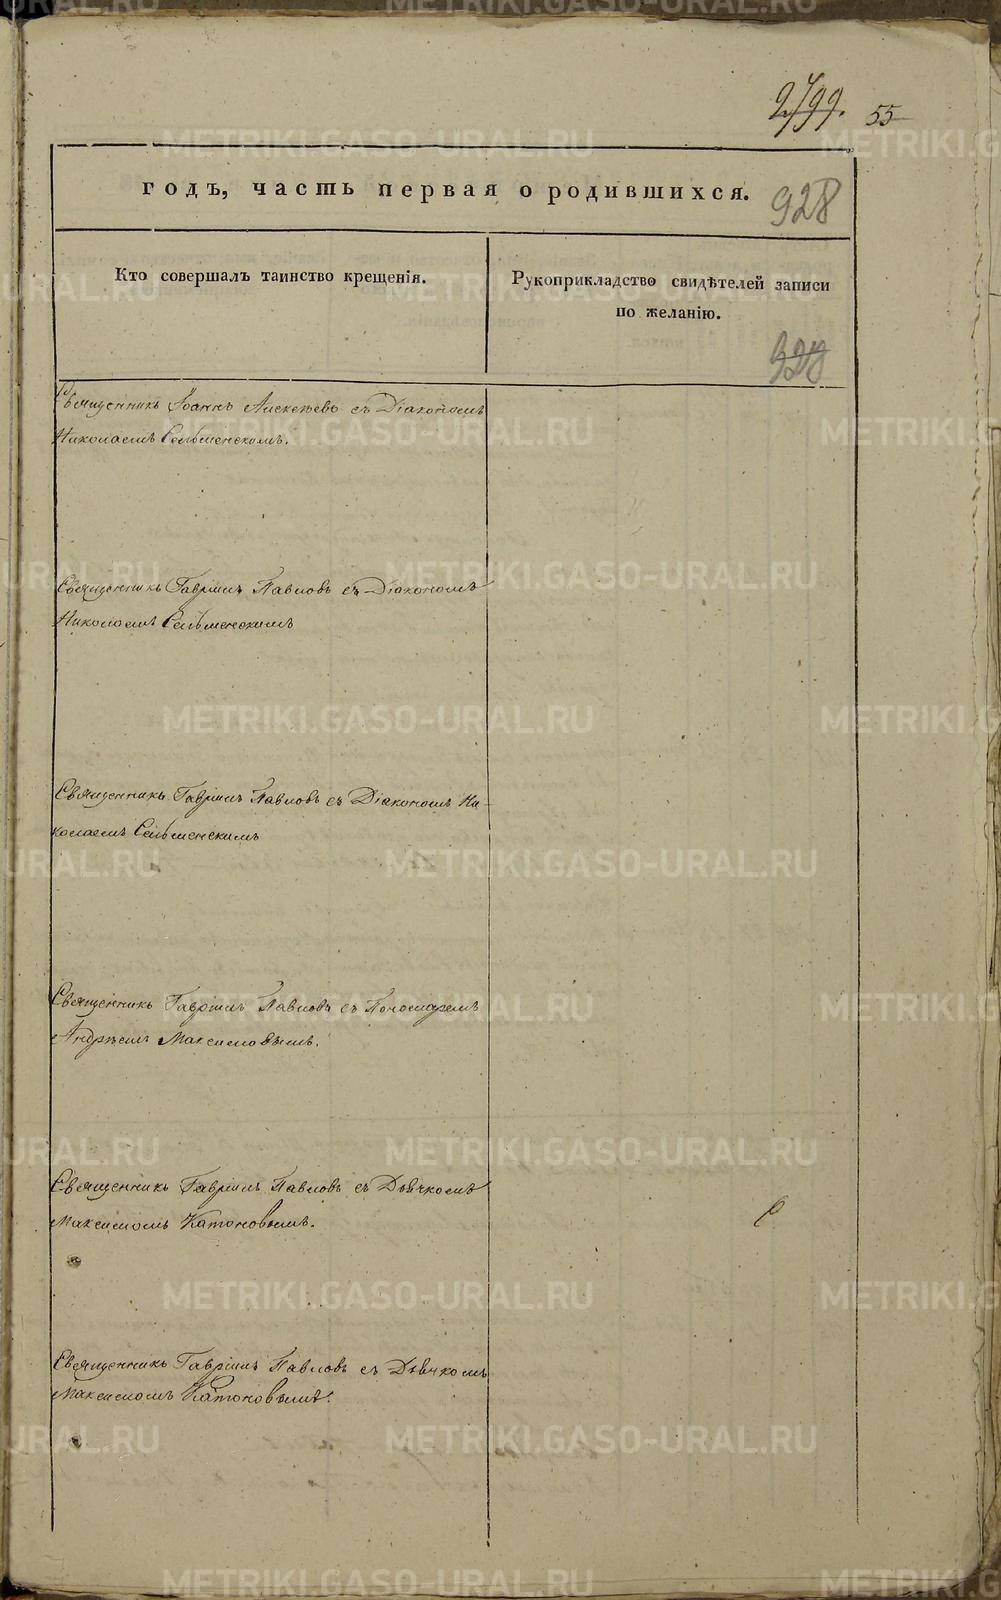 2799. 55
годъ, часть первая о родившихся. 928
Кто совершалъ таинство крещенія.
Рукоприкладство свидѣтелей записи
по желанію.
928
Священникъ Іоаннъ Алекѣево съ Діакономъ
Николаемъ Сельменскомъ.
Священникъ Гавріилъ Павловъ съ Діакономъ
Николаемъ Сельменскимъ
Священникъ Гавріилъ Павловъ съ Діакономъ Ни-
колаемъ Сельменскимъ
Священникъ Гавріилъ Павловъ съ Пономаремъ
Андреемъ Максимовымъ.
Священникъ Гавріилъ Павловъ съ Дьячкомъ
Максимомъ Катоновымъ.
Священникъ Гавріилъ Павловъ съ Дьячкомъ
Максимомъ Катоновымъ.
METRIKI.GASO-URAL.RU